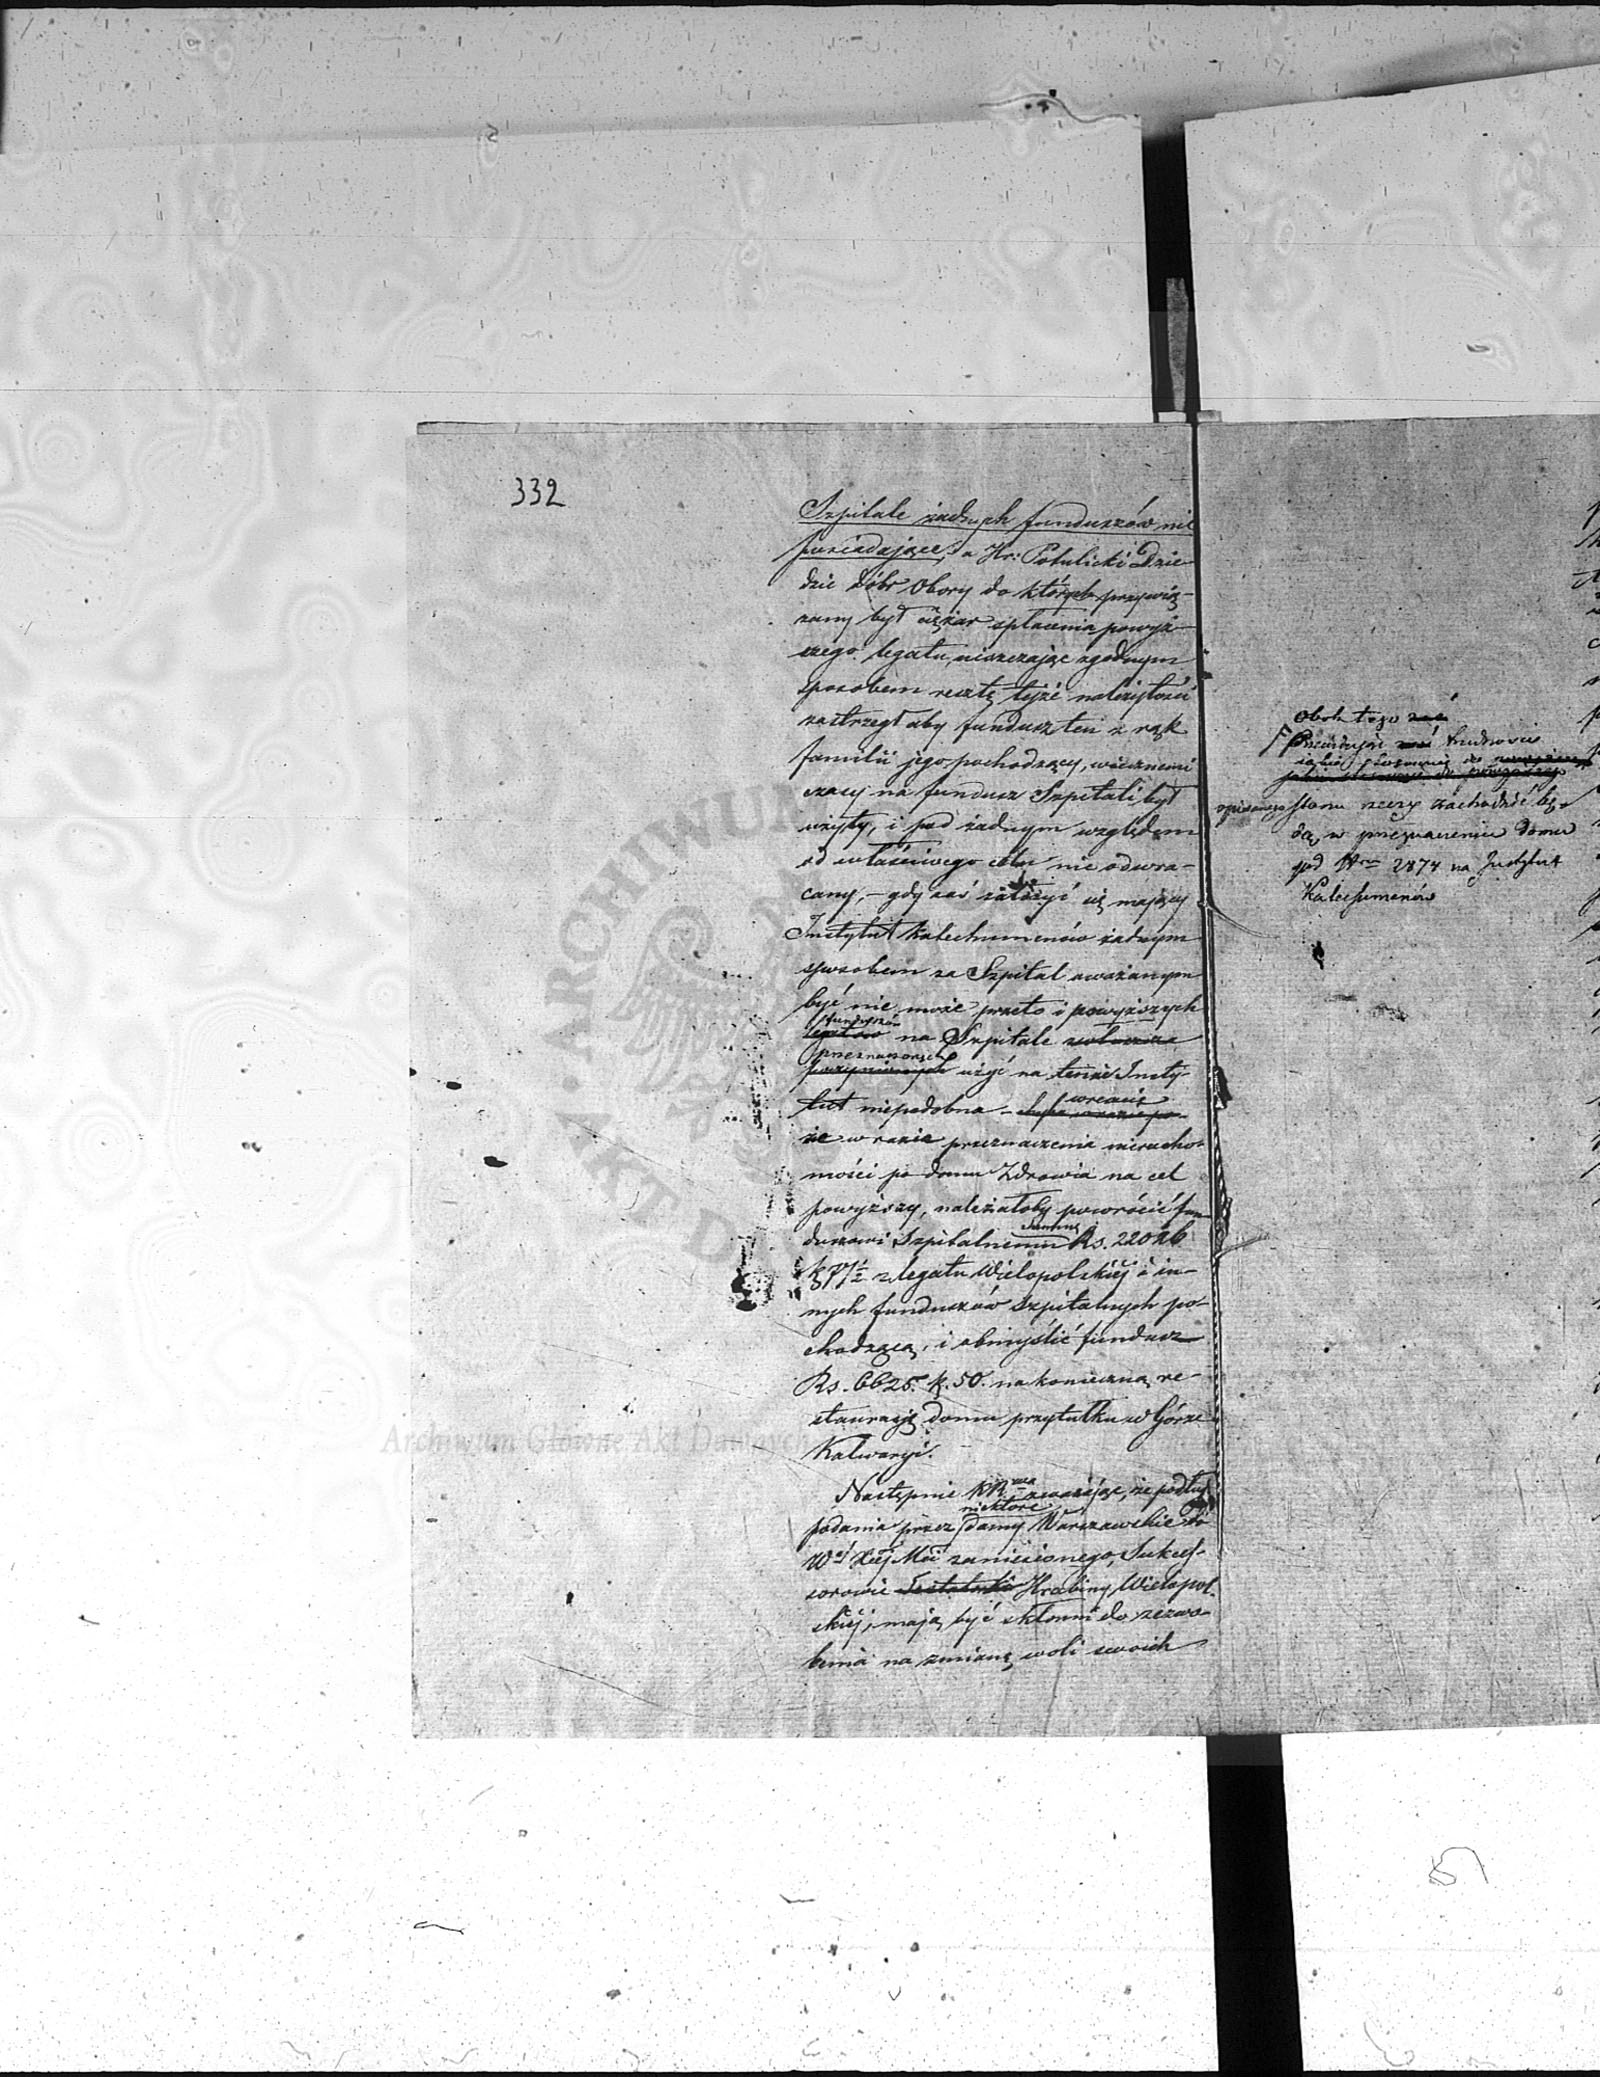 332
Szpitale żadnych funduszów nie
posiadające; a Hr: Potulicki Dzie-
dzic Dóbr Obory do których przywią-
zany był ciężar spłacenia powyż-
szego legatu, uiszczając zgodnym
sposobem resztę tejże należytości
zastrzegł aby fundusz ten z rąk
familii jego pochodzący, wiecznemi
czasy na fundusz Szpitali był
użyty, i pod żadnym względem
od właściwego celu nie odwra-
cany, – gdy zaś założyć się mający
Instytut Katechumenów żadnym
sposobem za Szpital uważanym
być nie może przeto i powyższych
funduszów
legatów na Szpitale
przeznaczonych
poczynionych użyć na tenże Insty-
tut niepodobna –
wreszcie
że w razie przeznaczenia nierucho-
mości po domu Zdrowia na cel
powyższy, należałoby powrócić fun
duszowi Szpitalnemu Rs. 22026
summę
k 97½ z legatu Wielopolskiej i in-
nych funduszów szpitalnych po-
chodzącą, i obmyślić fundusz
Rs. 6625. k. 50. na konieczną re-
stauracyę domu przytułku w Górze
Kalwaryi.
Następnie KR zważając, że podług
niektóre
podania przez damy Warszawskie do
W Mci zaniesionego, Sukces-
sorowie Hrabiny Wielopol-
skiej, mają być skłonni do zezwo-
lenia na zmianę woli swoich
obok tego
trudności
opisanego stanu rzeczy zachodzić bę-
dą w przeznaczeniu domu
pod Nrem 2874 na Instytut
Katechumenów
Archiwum Główne Akt Dawnych